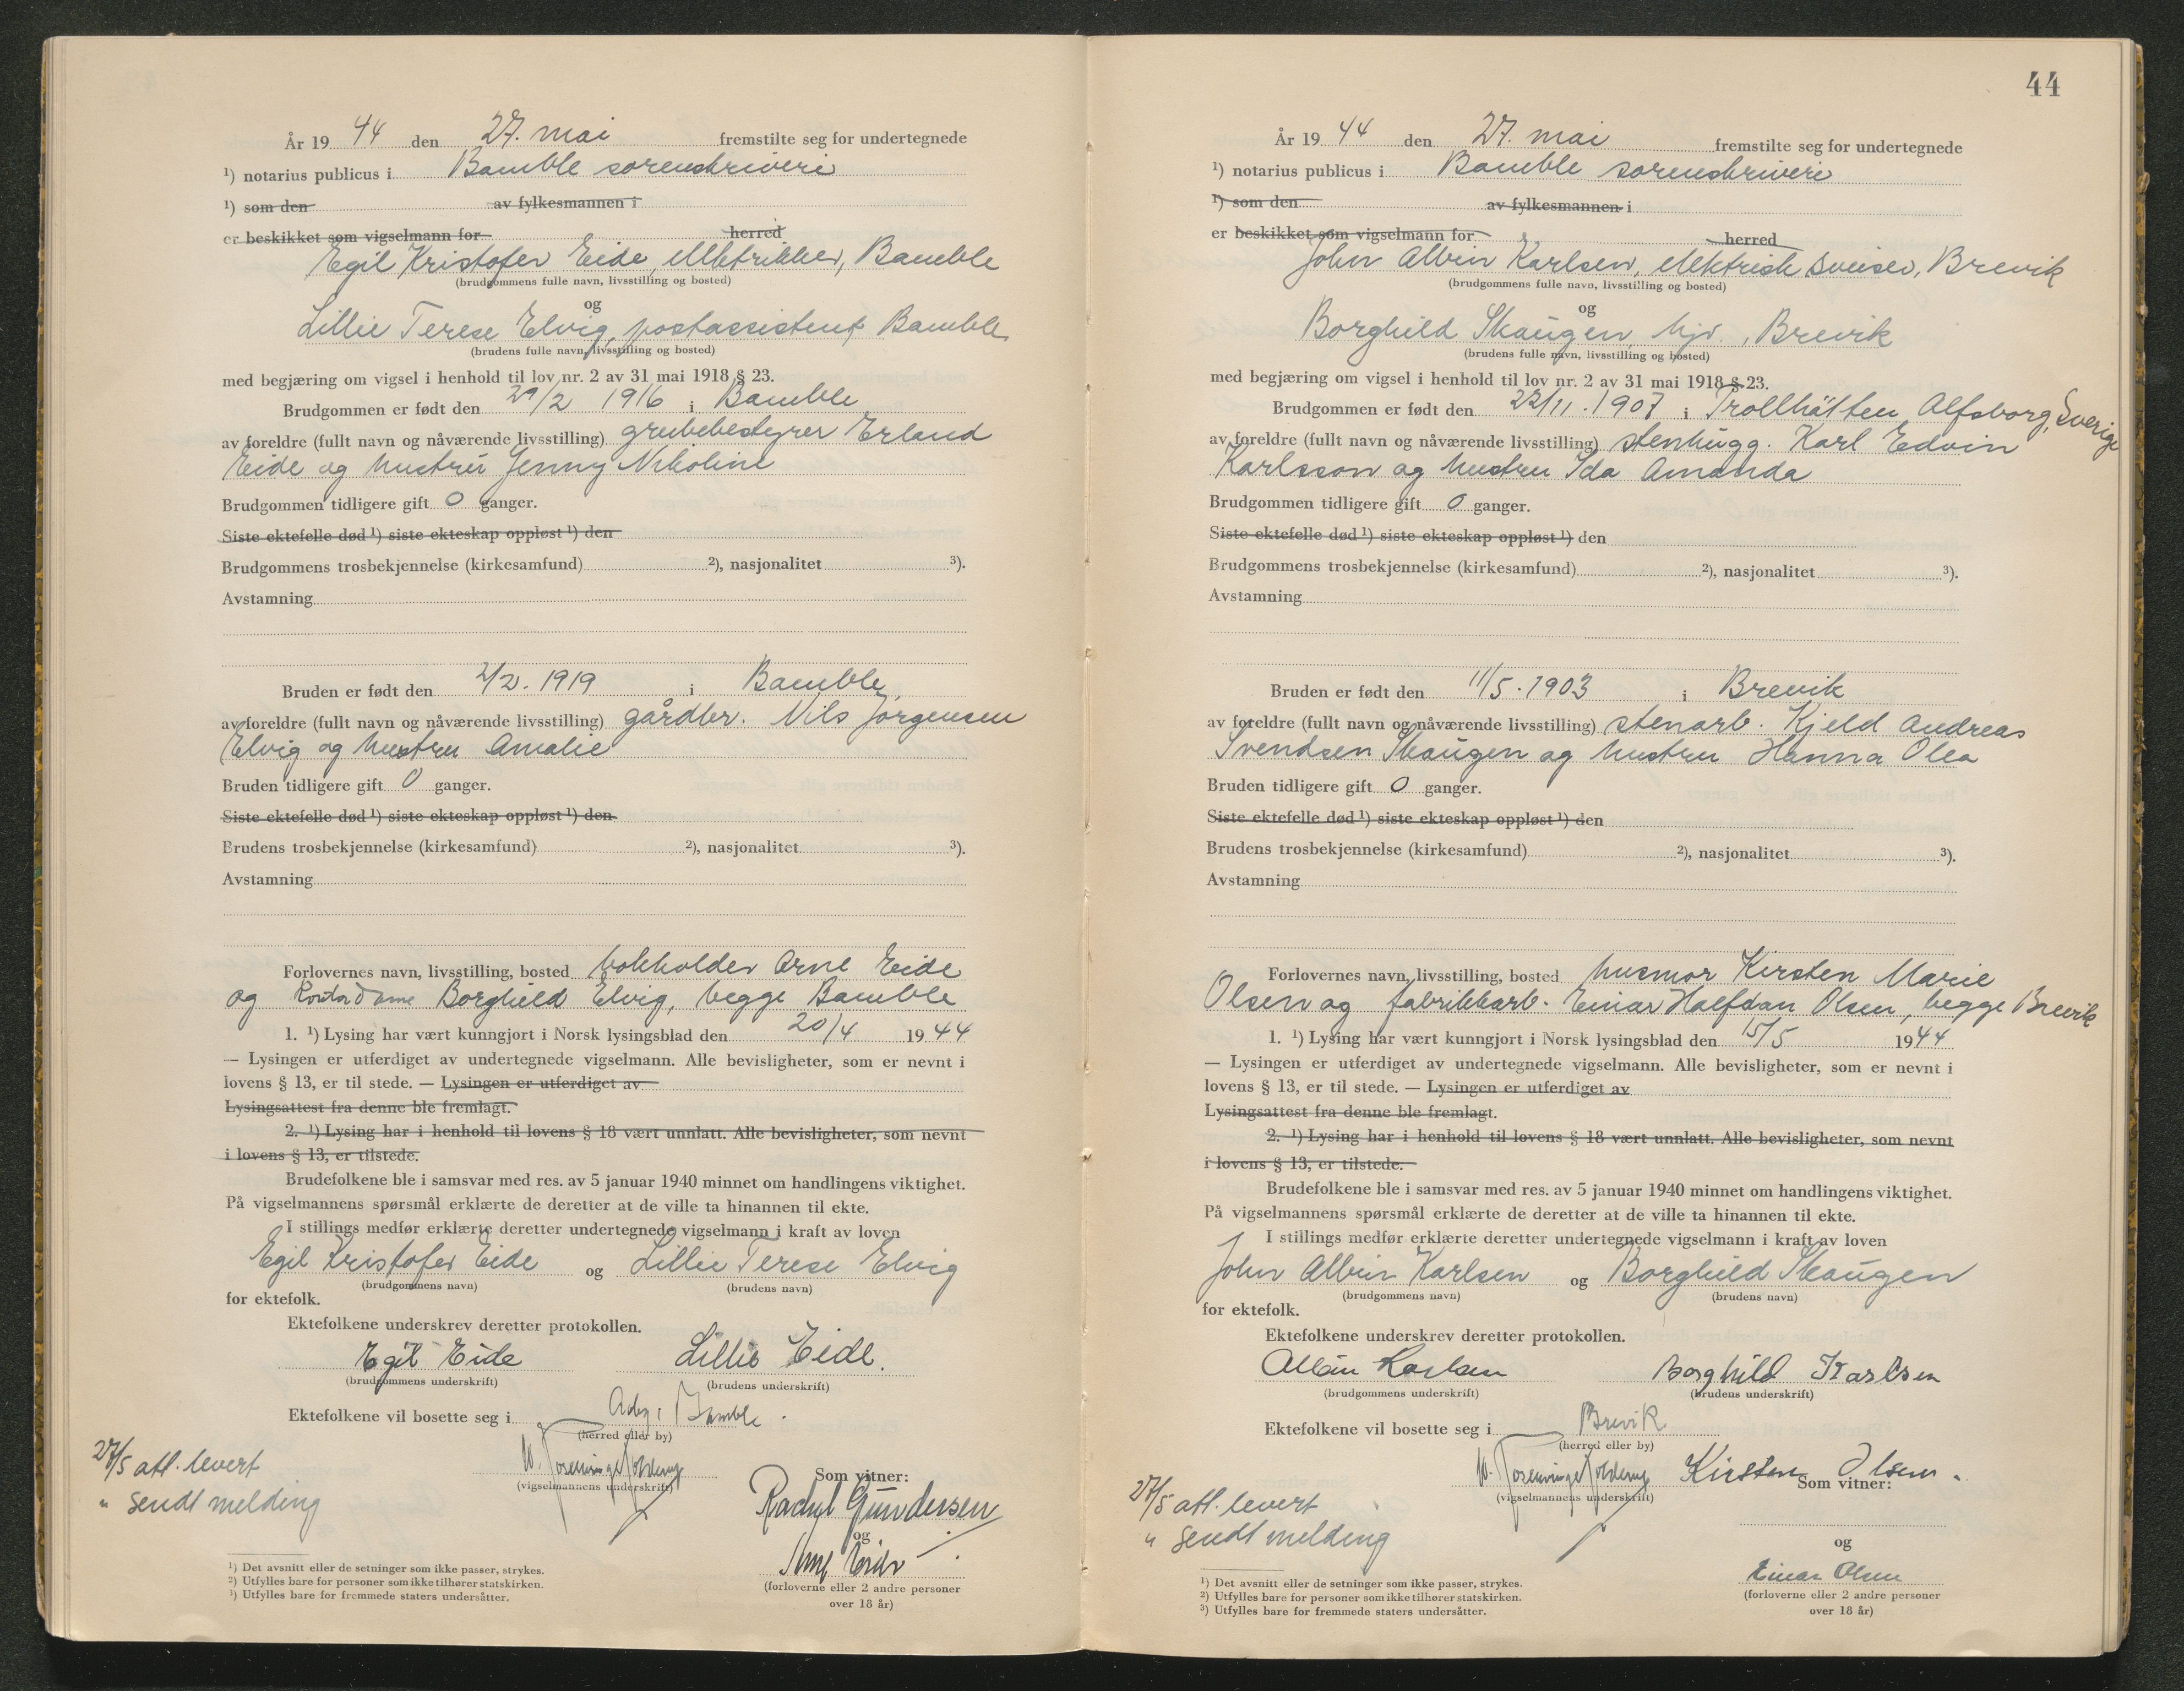 År 19 44 den 27. mai fremstilte seg for undertegnede
¹) notarius publicus i Bamble sorenskriveri
¹) som den av fylkesmannen i
er beskikket som vigselmann for herred
Egil Kristofer Eide, elektriker, Bamble
(brudgommens fulle navn, livsstilling og bosted)
og
Lillie Terese Elvig, postassistent, Bamble
(brudens fulle navn, livsstilling og bosted)
med begjæring om vigsel i henhold til lov nr. 2 av 31 mai 1918 § 23.
Brudgommen er født den 29/2 1916 i Bamble
av foreldre (fullt navn og nåværende livsstilling) grubebestyrer Erland
Eide og hustru Jenny Nikoline
Brudgommen tidligere gift 0 ganger.
Siste ektefelle død ¹) siste ekteskap oppløst ¹) den
Brudgommens trosbekjennelse (kirkesamfund) ²), nasjonalitet ³).
Avstamning
Bruden er født den 2/2. 1919 i Bamble,
av foreldre (fullt navn og nåværende livsstilling) gårdbr. Nils Jørgensen
Elvig og hustru Amalie
Bruden tidligere gift 0 ganger.
Siste ektefelle død ¹) siste ekteskap oppløst ¹) den
Brudens trosbekjennelse (kirkesamfund) ²), nasjonalitet ³).
Avstamning
Forlovernes navn, livsstilling, bosted bokholder Arne Eide
og Kontordame Borghild Elvig, begge Bamble
1. ¹) Lysing har vært kunngjort i Norsk lysingsblad den 20/4 1944
— Lysingen er utferdiget av undertegnede vigselmann. Alle bevisligheter, som er nevnt i
lovens § 13, er til stede. — Lysingen er utferdiget av
Lysingsattest fra denne ble fremlagt.
2. ¹) Lysing har i henhold til lovens § 18 vært unnlatt. Alle bevisligheter, som nevnt
i lovens § 13, er tilstede.
Brudefolkene ble i samsvar med res. av 5 januar 1940 minnet om handlingens viktighet.
På vigselmannens spørsmål erklærte de deretter at de ville ta hinannen til ekte.
I stillings medfør erklærte deretter undertegnede vigselmann i kraft av loven
Egil Kristofer Eide og Lillie Terese Elvig
(brudgommens navn) (brudens navn)
for ektefolk.
Ektefolkene underskrev deretter protokollen.
Egil Eide Lillie Eide.
(brudgommens underskrift) (brudens underskrift)
Ektefolkene vil bosette seg i Åby i Bamble.
(herred eller by)
27/5 att. levert
" sendt melding
(vigselmannens underskrift)
Som vitner:
Gundersen
og
Arne Eide
(forloverne eller 2 andre personer
over 18 år)
¹) Det avsnitt eller de setninger som ikke passer, strykes.
²) Utfylles bare for personer som ikke tilhører statskirken.
³) Utfylles bare for fremmede staters undersåtter.
44
År 19 44 den 27. mai fremstilte seg for undertegnede
¹) notarius publicus i Bamble sorenskriveri
¹) som den av fylkesmannen i
er beskikket som vigselmann for herred
John Albin Karlsen, elektrisk sveiser, Brevik
(brudgommens fulle navn, livsstilling og bosted)
og
Borghild Skaugen, hjv., Brevik
(brudens fulle navn, livsstilling og bosted)
med begjæring om vigsel i henhold til lov nr. 2 av 31 mai 1918 § 23.
Brudgommen er født den 22/11. 1907 i Trollhätten Alfsborg, Sverige
av foreldre (fullt navn og nåværende livsstilling) stenhugg. Karl Edvin
Karlsson og hustru Ida Amanda
Brudgommen tidligere gift 0 ganger.
Siste ektefelle død ¹) siste ekteskap oppløst ¹) den
Brudgommens trosbekjennelse (kirkesamfund) ²), nasjonalitet ³).
Avstamning
Bruden er født den 11/5. 1903 i Brevik
av foreldre (fullt navn og nåværende livsstilling) stenarb. Kjeld Andreas
Svendsen Skaugen og hustru Hanna Olea
Bruden tidligere gift 0 ganger.
Siste ektefelle død ¹) siste ekteskap oppløst ¹) den
Brudens trosbekjennelse (kirkesamfund) ²), nasjonalitet ³).
Avstamning
Forlovernes navn, livsstilling, bosted husmor Kirsten Marie
Olsen og fabrikkarb. Einar Halfdan Olsen, begge Brevik
1. ¹) Lysing har vært kunngjort i Norsk lysingsblad den 15/5 1944
— Lysingen er utferdiget av undertegnede vigselmann. Alle bevisligheter, som er nevnt i
lovens § 13, er til stede. — Lysingen er utferdiget av
Lysingsattest fra denne ble fremlagt.
2. ¹) Lysing har i henhold til lovens § 18 vært unnlatt. Alle bevisligheter, som nevnt
i lovens § 13, er tilstede.
Brudefolkene ble i samsvar med res. av 5 januar 1940 minnet om handlingens viktighet.
På vigselmannens spørsmål erklærte de deretter at de ville ta hinannen til ekte.
I stillings medfør erklærte deretter undertegnede vigselmann i kraft av loven
John Albin Karlsen og Borghild Skaugen
(brudgommens navn) (brudens navn)
for ektefolk.
Ektefolkene underskrev deretter protokollen.
Albin Karlsen Borghild Karlsen
(brudgommens underskrift) (brudens underskrift)
Ektefolkene vil bosette seg i Brevik
(herred eller by)
27/5 att. levert
" sendt melding
(vigselmannens underskrift)
Kirsten Olsen.
Som vitner:
og
Einar Olsen
(forloverne eller 2 andre personer
over 18 år)
¹) Det avsnitt eller de setninger som ikke passer, strykes.
²) Utfylles bare for personer som ikke tilhører statskirken.
³) Utfylles bare for fremmede staters undersåtter.